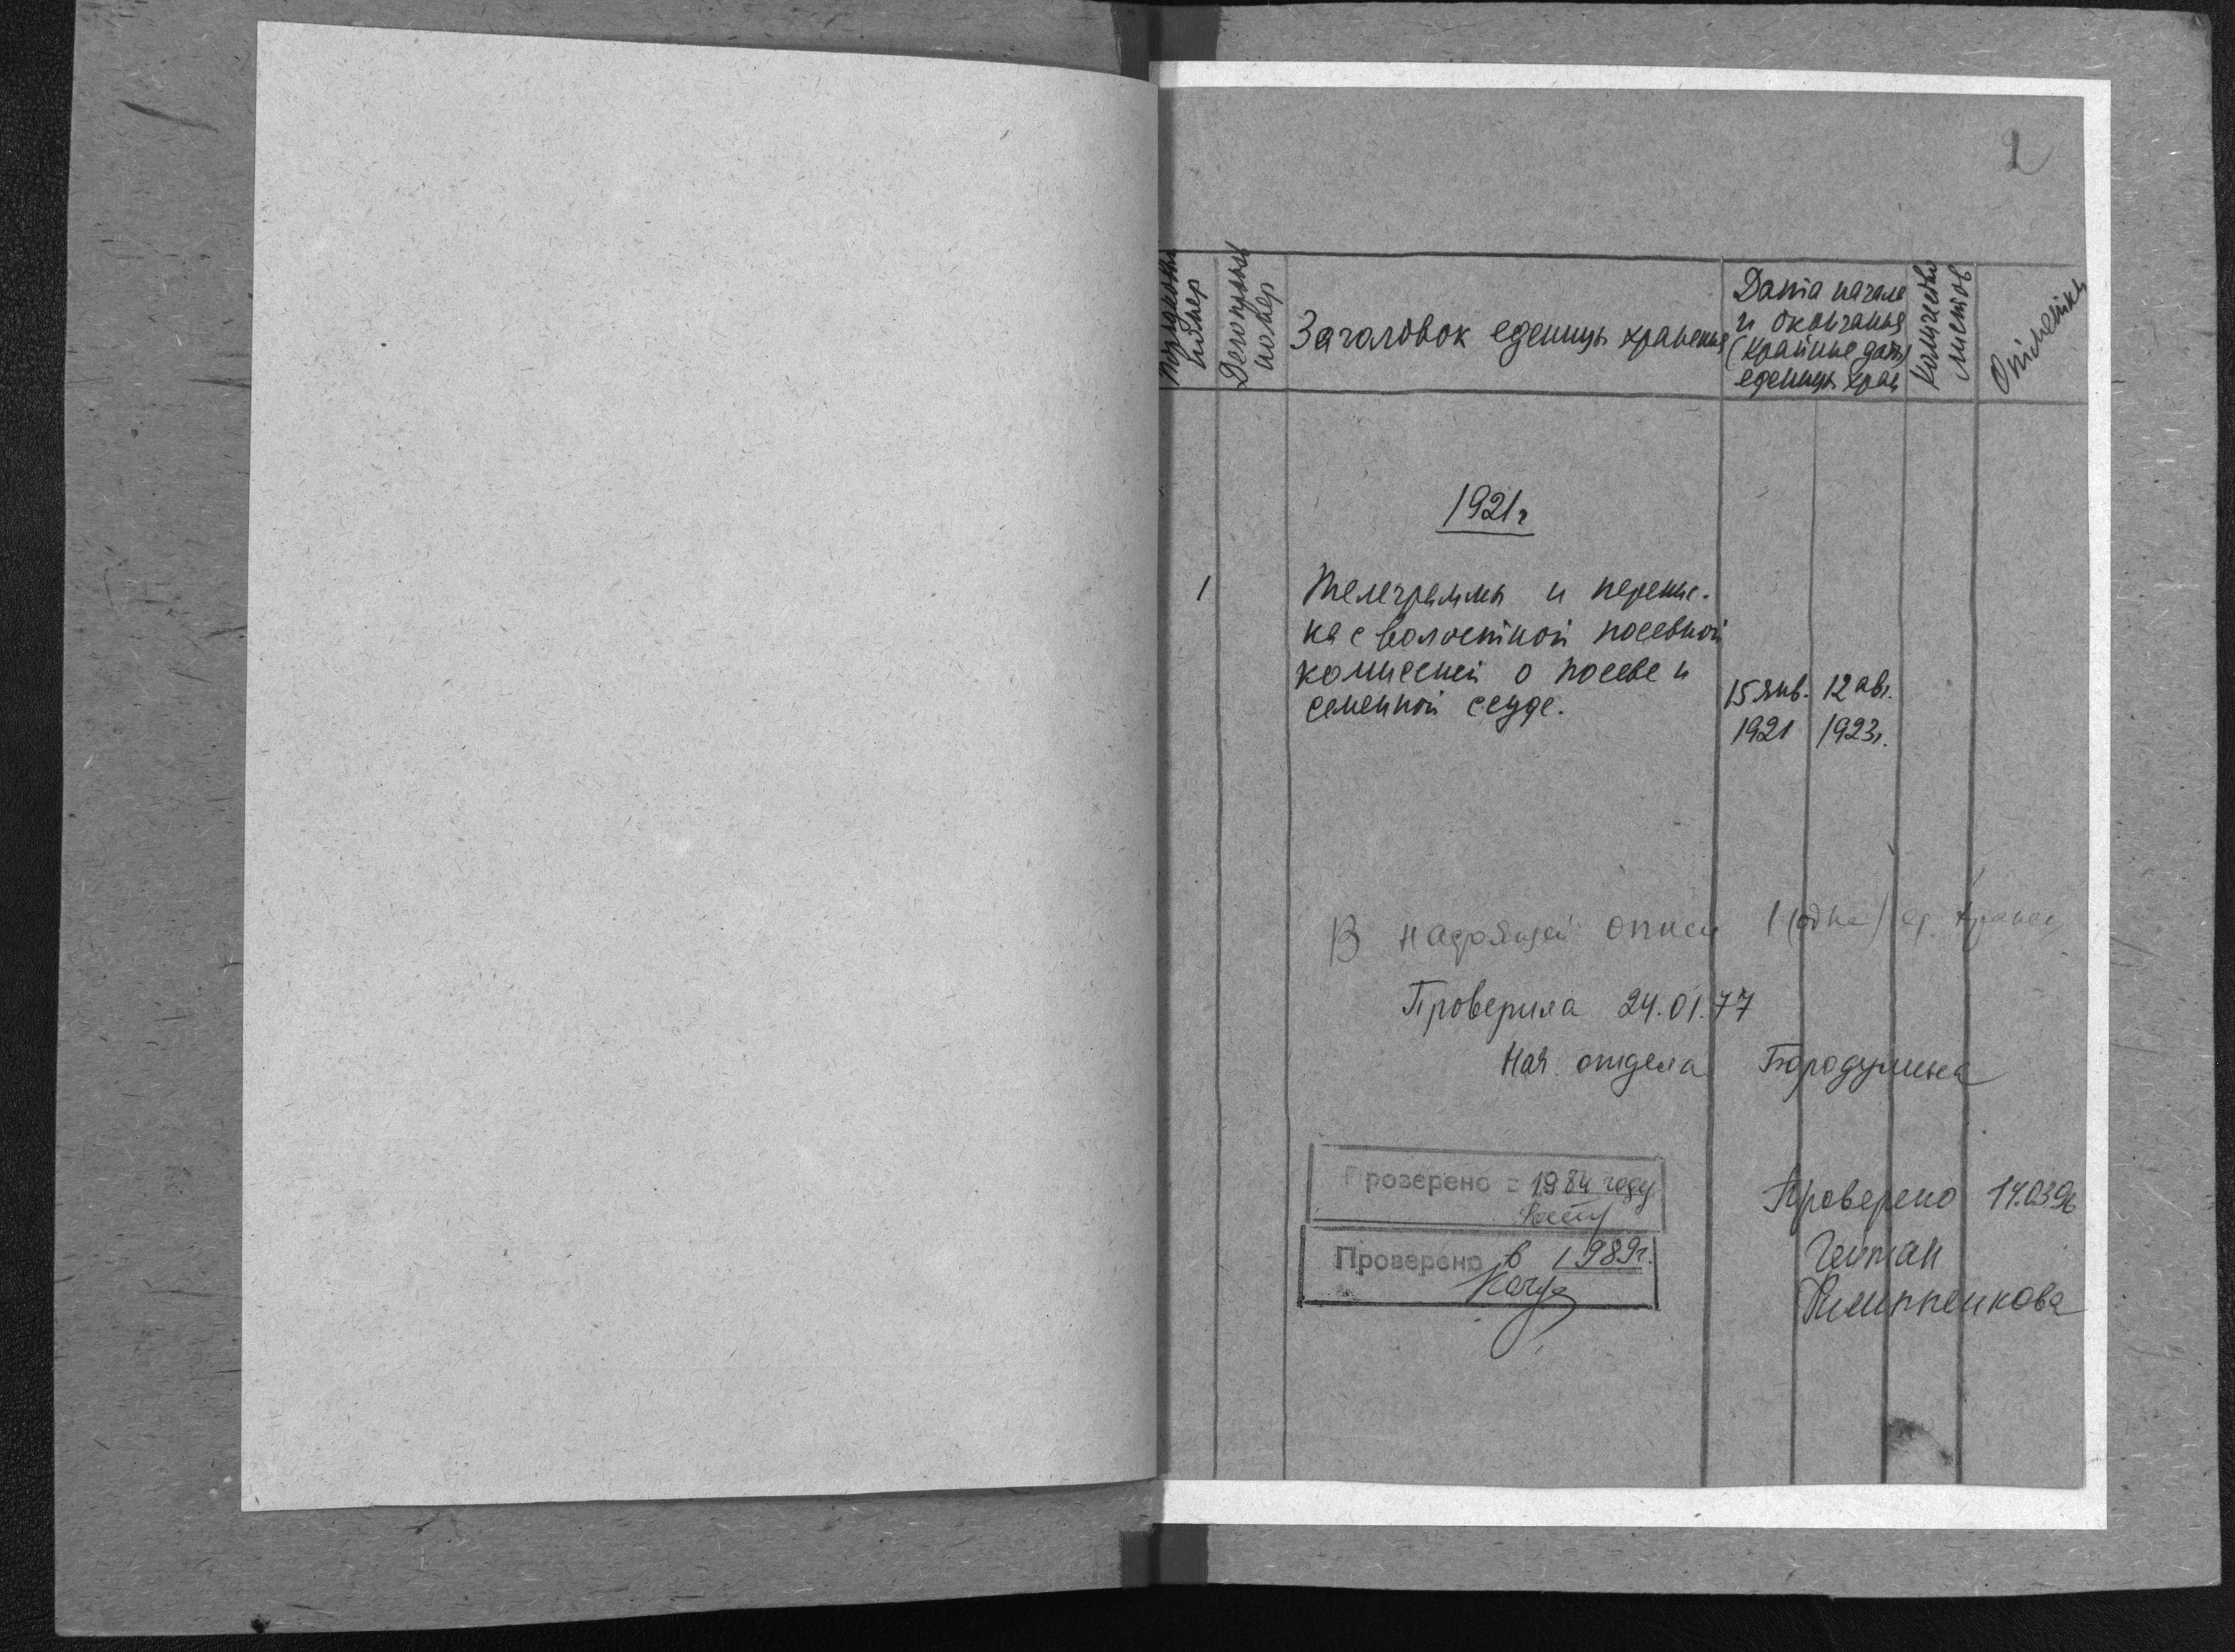 2
Порядковый
номер
Делопрызвод
номер
Заголовок еденицы хранения
Дата начала
и окончания
(крайние даты)
еденицы хран
Количество
листов
Отметки
1921г
1
Телеграммы и перепис-
ка с волостной посевной
комиссией о посеве и
семенной ссуде.
15 янв. 12 авг.
1921 1923г.
В надоящей описи 1 (одна) ед. хранен
Проверила 24.01.77
Нач. отдела Бородулина
Проверено в 1984 году
Проверено в 1989г.
Проверено 14.03.96
Гейман
Филиппенкова